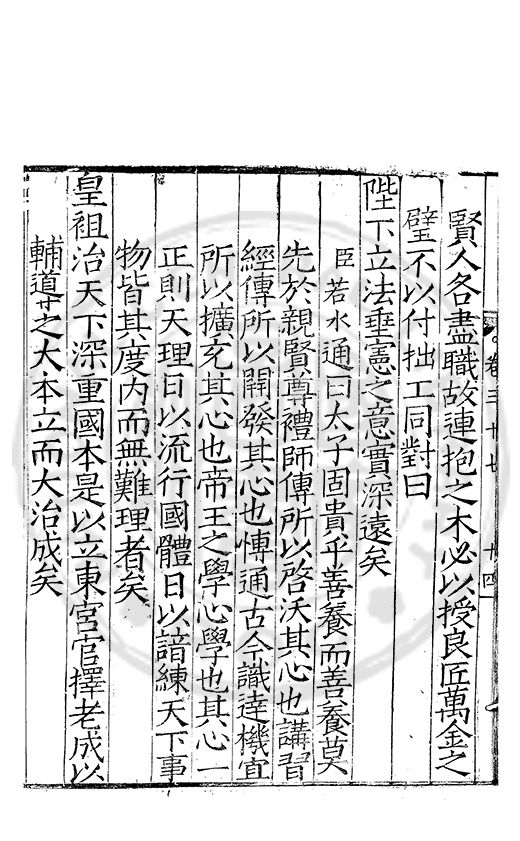 賢人各盡職故連抱之木必以授良匠萬金之
璧不以付拙工同對曰
陛下立法垂憲之意實深遠矣
臣若水通曰太子固貴乎善養而善養莫
先於親賢尊禮師傅所以啓沃其心也講習
經傳所以開發其心也愽通古今識達機宜
所以擴充其心也帝王之學心學也其心一
正則天理日以流行國體日以諳練天下事
物皆其度內而無難理者矣
皇祖治天下深重國本是以立東宮官擇老成以
輔導之大本立而大治成矣
卷三十七
十四